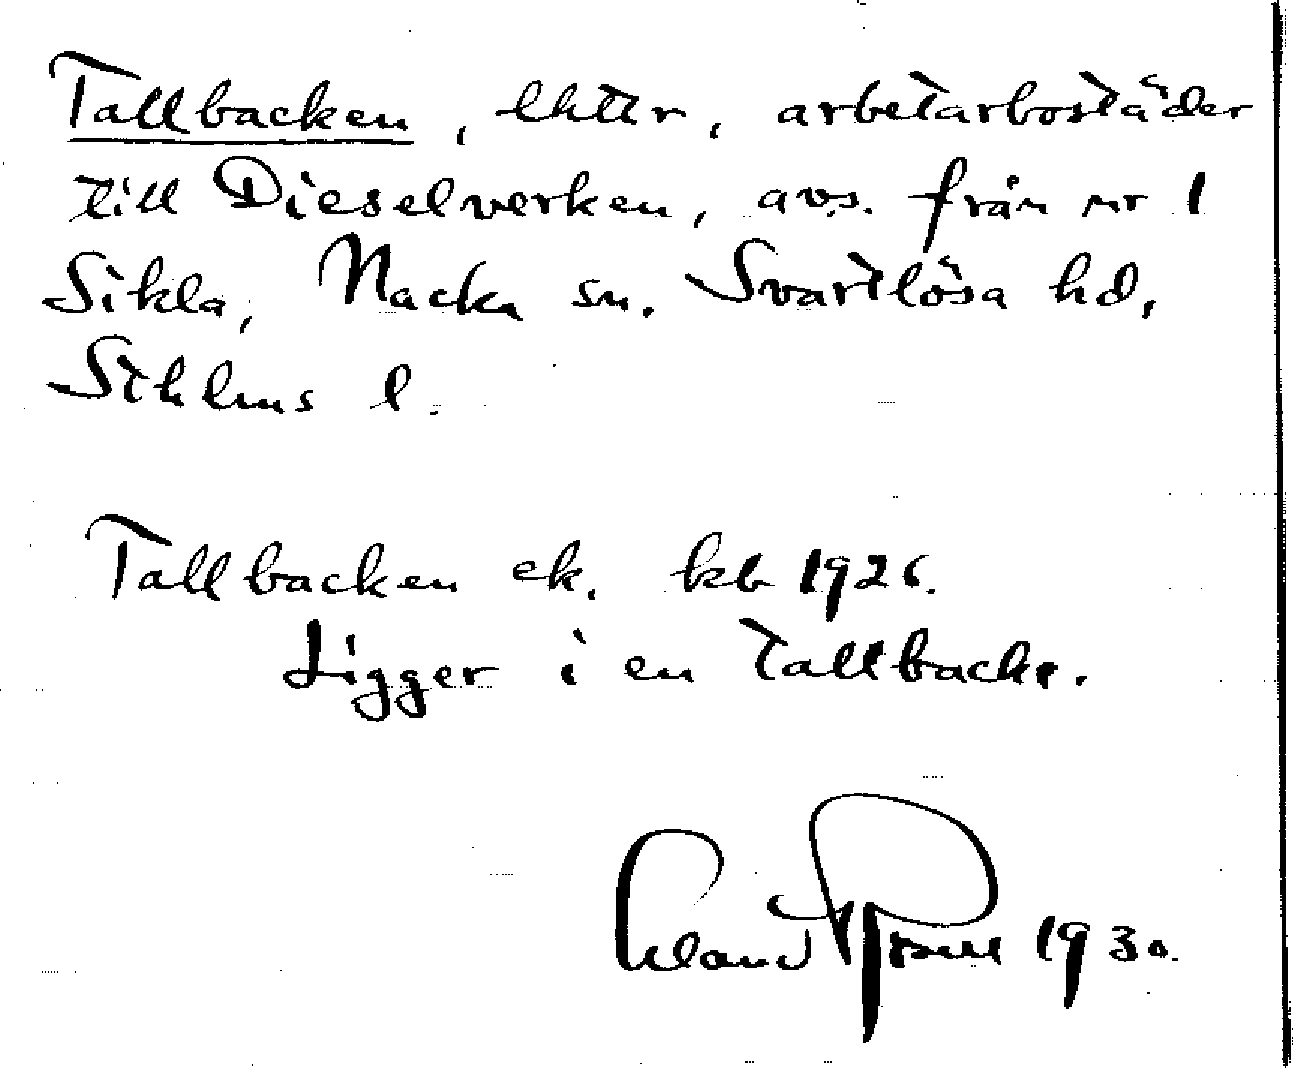 Tallbacken, lhtr, arbetarbostäder
till Dieselverken, avs. från nr 1
Sikla, Nacka sn. Svartlösa hd,
Sthlms l.
Tallbacken ek. kb 1926.
Ligger i en tallbacke.
1930.